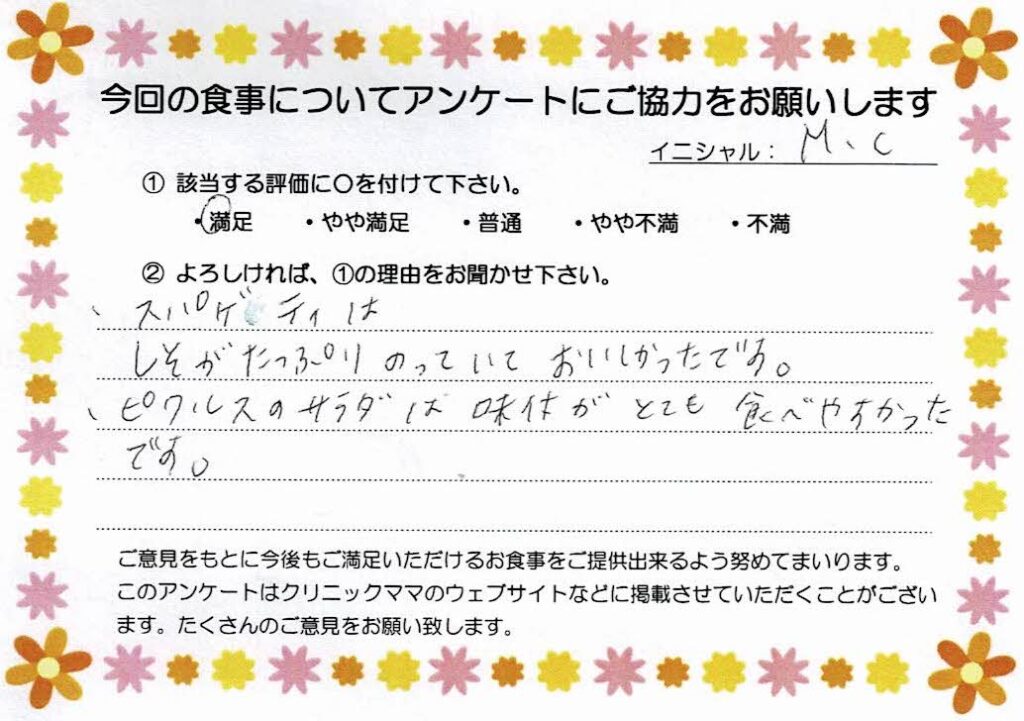 今回の食事についてアンケートにご協力をお願いします
イニシャル： M、C
① 該当する評価に〇を付けて下さい。
・満足 ・やや満足 ・普通 ・やや不満 ・不満
② よろしければ、①の理由をお聞かせ下さい。
、スパゲティは
しそがたっぷりのっていておいしかったです。
、ピクルスのサラダは味体がとても食べやすかった
です。
ご意見をもとに今後もご満足いただけるお食事をご提供出来るよう努めてまいります。
このアンケートはクリニックママのウェブサイトなどに掲載させていただくことがござい
ます。たくさんのご意見をお願い致します。